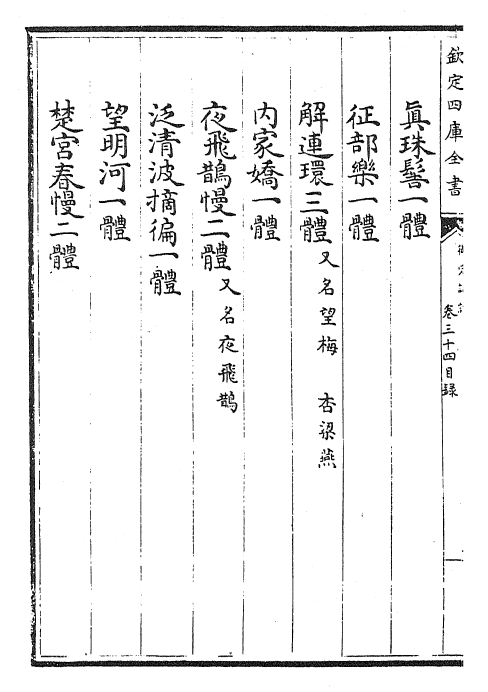 欽定四庫全書
卷三十四目錄
真珠髻一體
征部樂一體
解連環三體又名望梅 杏梁燕
內家嬌一體
夜飛鵲慢二體又名夜飛鵲
泛清波摘徧一體
望明河一體
楚宮春慢二體